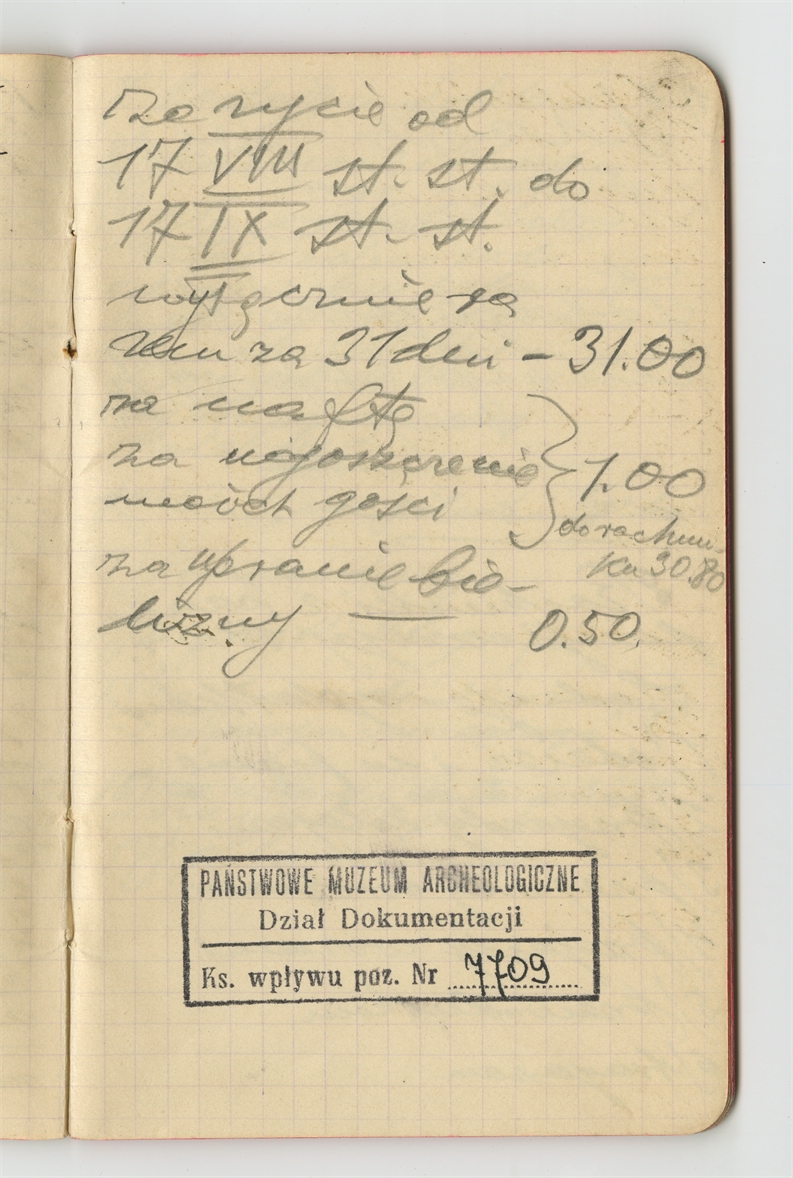 za życie od
17 VIII st. st. do
17 IX st. st.
wyłącznie ra
zem za 31 dni – 31.00
za naftę
za ugoszczenie
moich gości
1.00
do rachun-
ku 30.80
za upranie bie-
lizny — 0.50.
PAŃSTWOWE MUZEUM ARCHEOLOGICZNE
Dział Dokumentacji
Ks. wpływu poz. Nr 7709